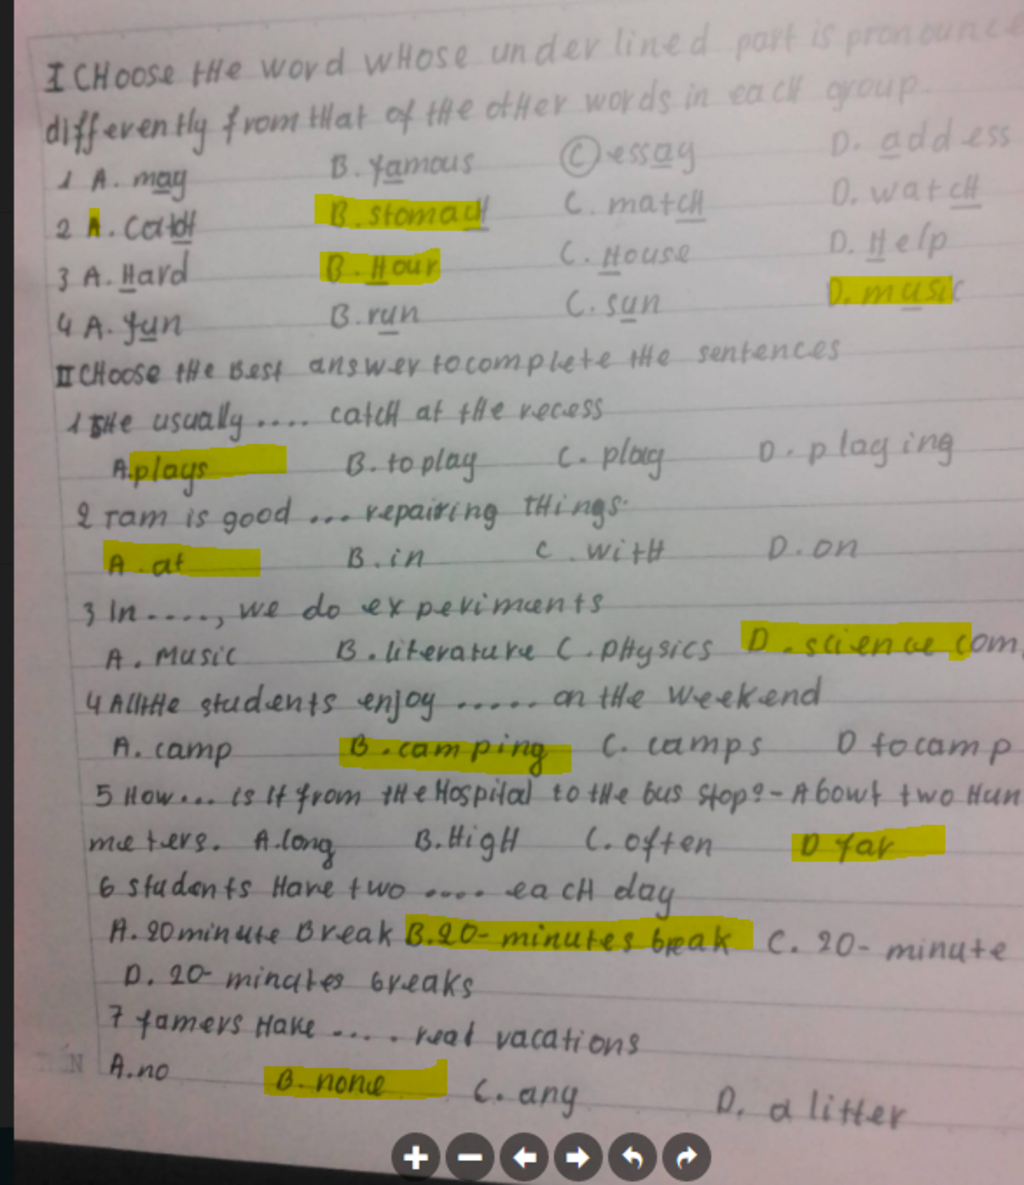 I CHoose tHe word wHose under lined part is pronounce
differently from tHat of tHe otHer words in eacH group.
1 A. may B. famous C essay D. address
2 A. CatcH B. stomacH C. matcH D. watcH
3 A. Hard B. Hour C. House D. Help
4 A. fun B. run C. sun D. music
II CHoose tHe Best answer to complete tHe sentences
1 SHe usually .... catcH at tHe recess
A. plays B. to play C. play D. playing
2 Tam is good ... repairing tHings.
A. at B. in C. witH D. on
3 In ...., we do experiments
A. Music B. literature C. pHysics D. science com
4 All tHe students enjoy ..... on tHe weekend
A. camp B. camping C. camps D to camp
5 How... is it from tHe Hospital to tHe bus stop? - About two Hun
meters. A. long B. HigH C. often D far
6 students Have two .... eacH day
A. 20 minute Break B. 20- minutes break C. 20- minute
D. 20- minutes breaks
7 famers Have .... real vacations
A. no B. none C. any D. a litter